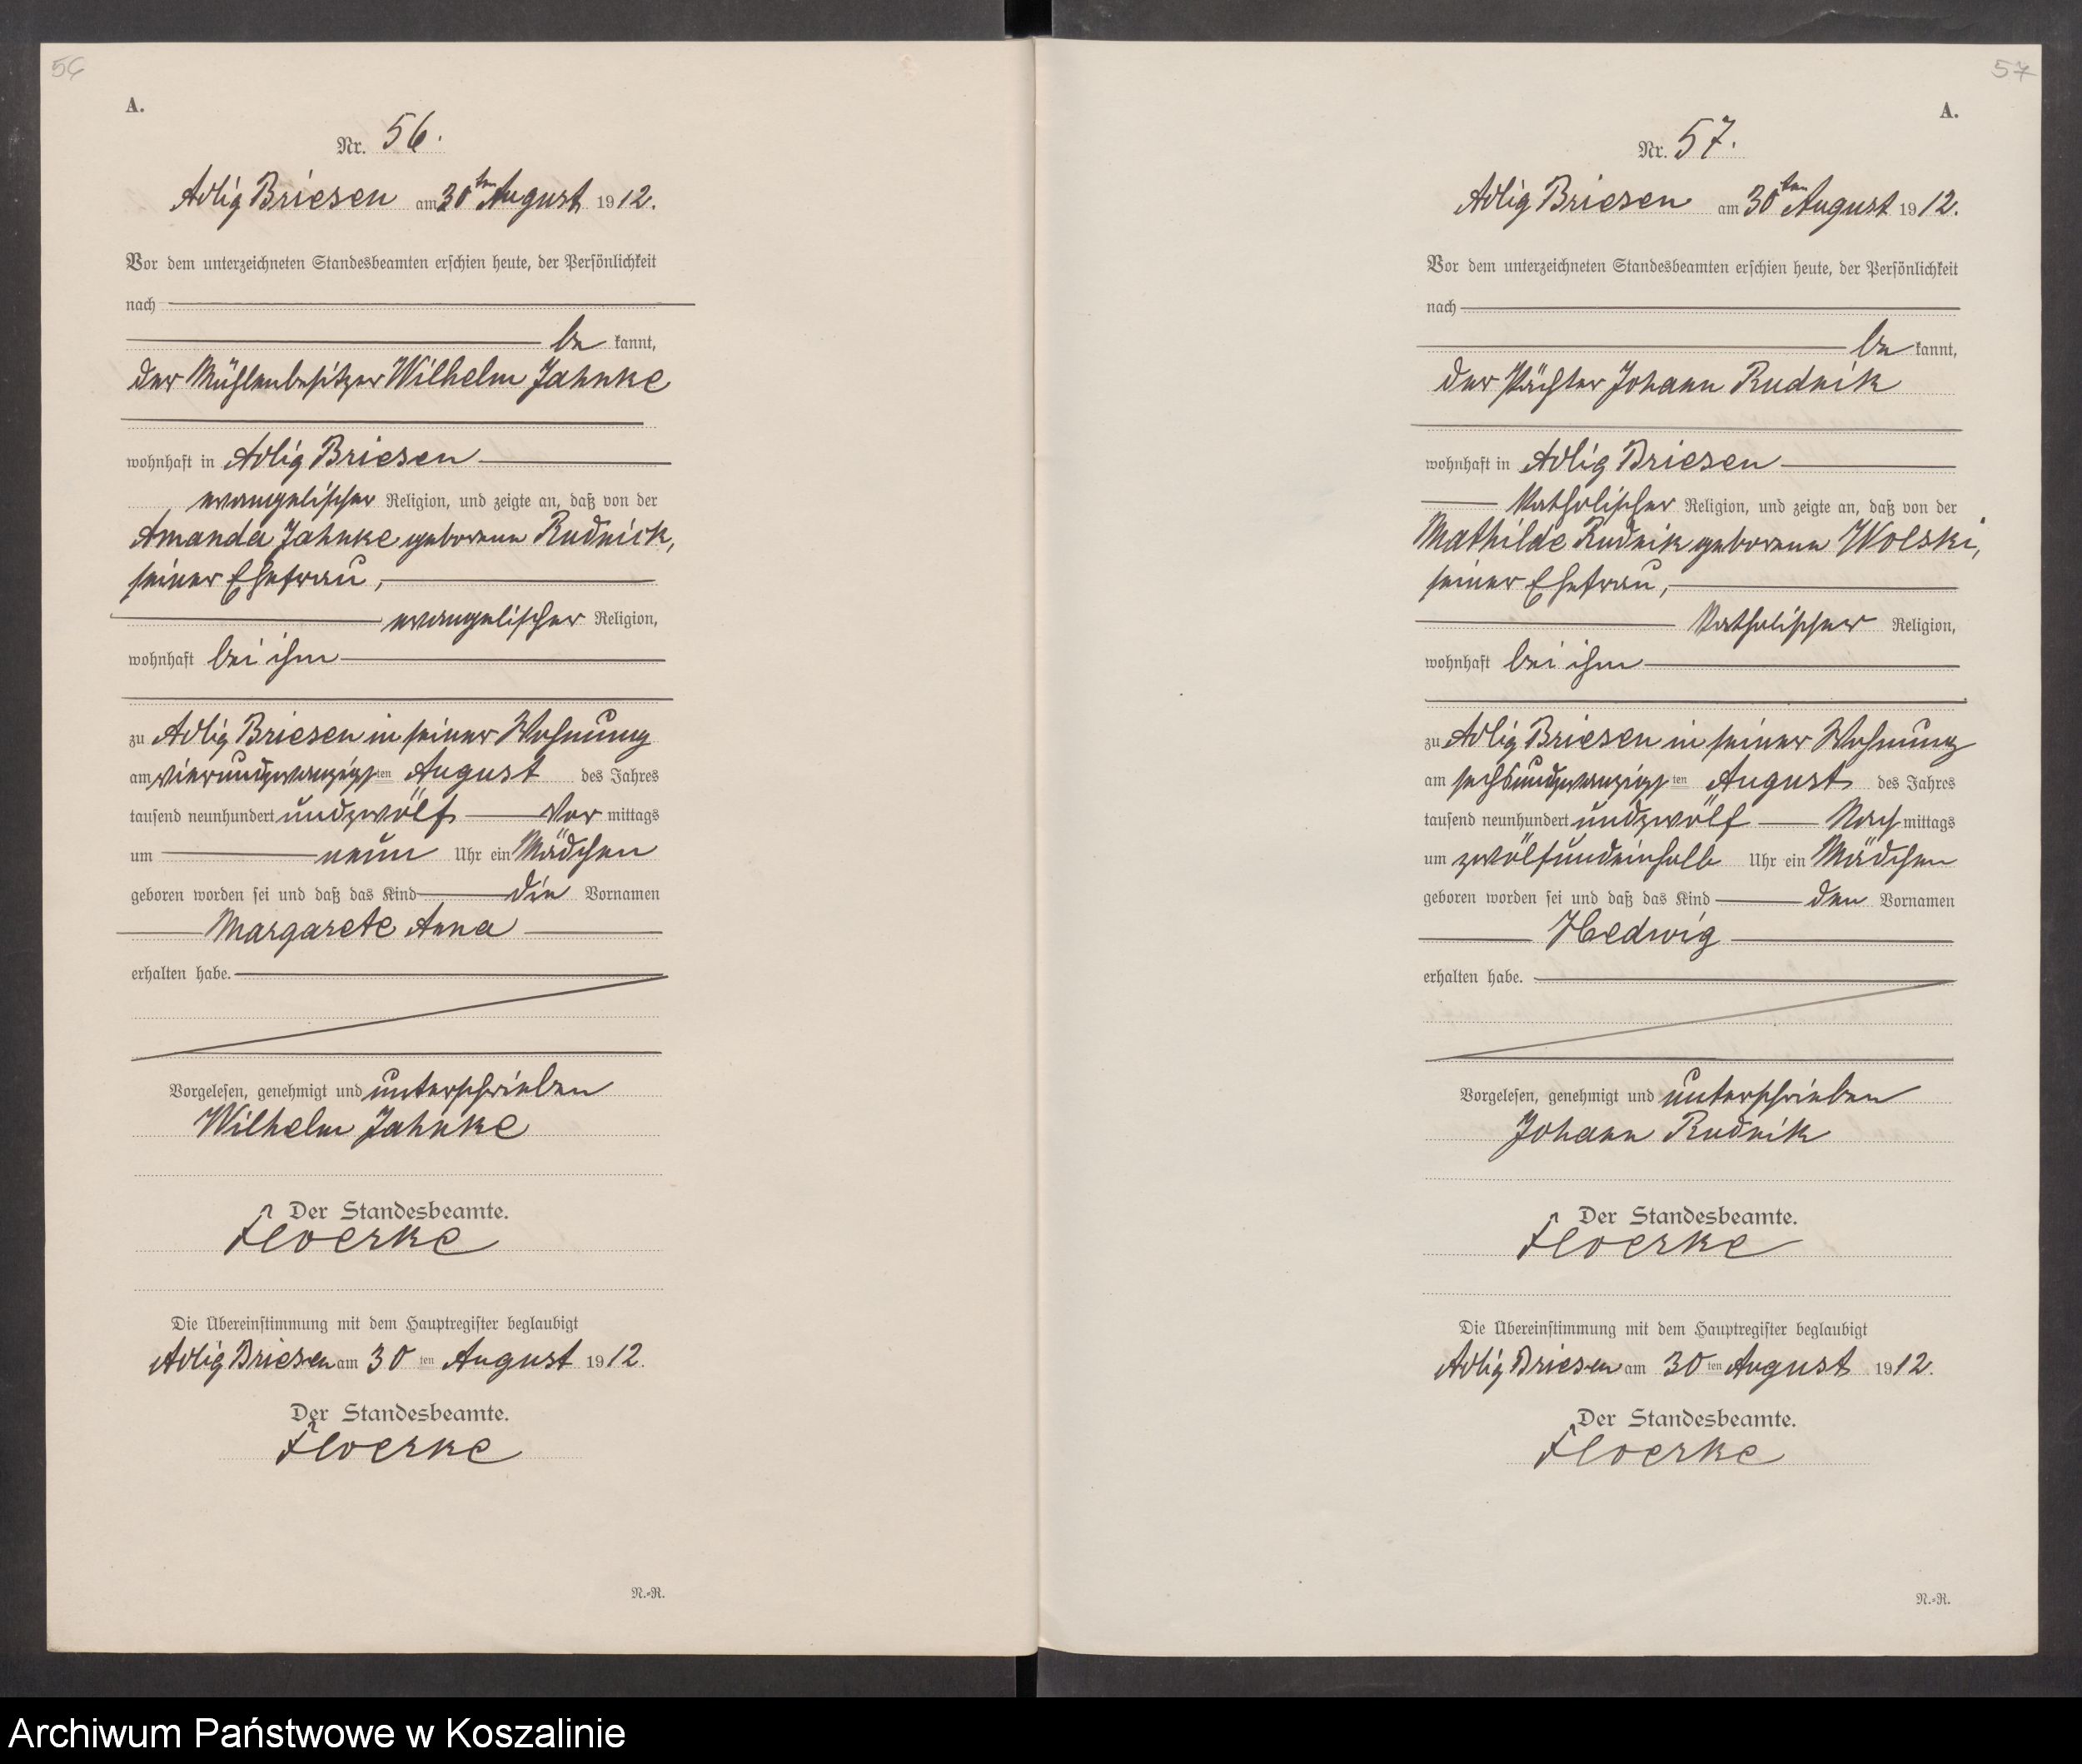 56
A.
Nr. 56.
Adlig Briesen am 30ten August 1912.
Vor dem unterzeichneten Standesbeamten erschien heute, der Persönlichkeit
nach
be kannt,
der Mühlenbesitzer Wilhelm Jahnke
wohnhaft in Adlig Briesen
evangelischer Religion, und zeigte an, daß von der
Amanda Jahnke geborene Rudnick,
seiner Ehefrau,
evangelischer Religion,
wohnhaft bei ihm
zu Adlig Briesen in seiner Wohnung
am vierundzwanzigsten August des Jahres
tausend neunhundert undzwölf Vor mittags
um neun Uhr ein Mädchen
geboren worden sei und daß das Kind die Vornamen
Margarete Anna
erhalten habe.
Vorgelesen, genehmigt und unterschrieben
Wilhelm Jahnke
Der Standesbeamte.
Floerke
Die Übereinstimmung mit dem Hauptregister beglaubigt
Adlig Briesen am 30 ten August 1912.
Der Standesbeamte.
Floerke
N.-R.
57
A.
Nr. 57.
Adlig Briesen am 30ten August 1912.
Vor dem unterzeichneten Standesbeamten erschien heute, der Persönlichkeit
nach
be kannt,
der Pächter Johann Rudnik
wohnhaft in Adlig Briesen
katholischer Religion, und zeigte an, daß von der
Mathilde Rudnik geborene Wolski,
seiner Ehefrau,
katholischer Religion,
wohnhaft bei ihm
zu Adlig Briesen in seiner Wohnung
am sechsundzwanzigsten August des Jahres
tausend neunhundert undzwölf Nach mittags
um zwölfundeinhalb Uhr ein Mädchen
geboren worden sei und daß das Kind den Vornamen
Hedwig
erhalten habe.
Vorgelesen, genehmigt und unterschrieben
Johann Rudnik
Der Standesbeamte.
Floerke
Die Übereinstimmung mit dem Hauptregister beglaubigt
Adlig Briesen am 30 ten August 1912.
Der Standesbeamte.
Floerke
N.-R.
Archiwum Państwowe w Koszalinie